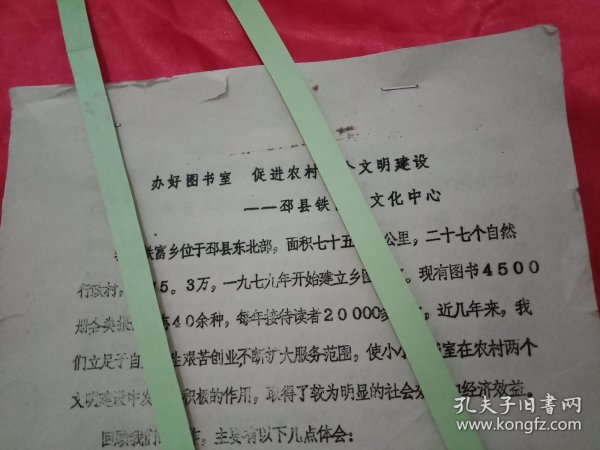 办好图书室 促进农村 个文明建设
——邳县铁 文化中心
铁富乡位于邳县东北部，面积七十五 公里，二十七个自然
行政村， 5。3万，一九七九年开始建立乡图 。现有图书4500
册各类报 40余种，每年接待读者20000 ，近几年来，我
们立足于自 艰苦创业不断扩大服务范围，使小小 书室在农村两个
文明建设中发 积极的作用，取得了较为明显的社会 和经济效益。
回顾我们 作，主要有以下几点体会：
孔夫子旧书网
www.kongfz.com